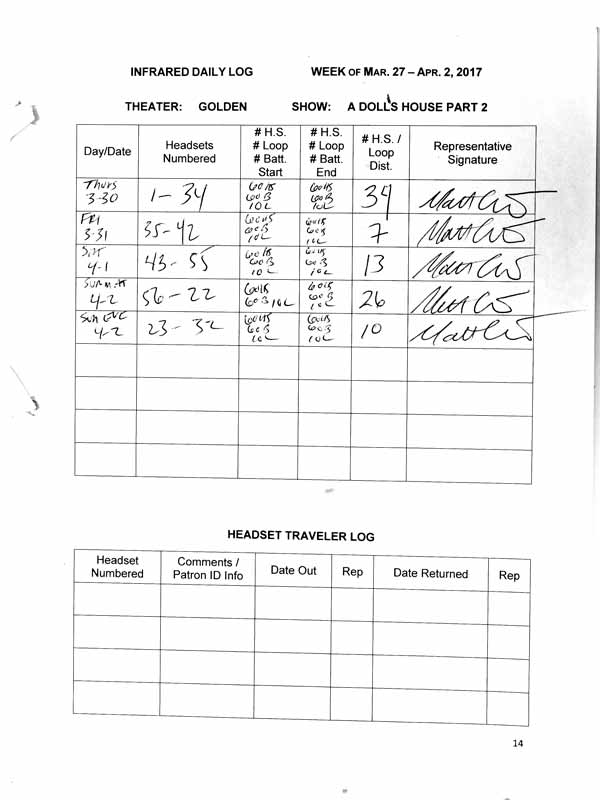 INFRARED DAILY LOG WEEK OF MAR. 27 – APR. 2, 2017
THEATER: GOLDEN SHOW: A DOLL'S HOUSE PART 2
Day/Date
Headsets
Numbered
# H.S.
# Loop
# Batt.
Start
# H.S.
# Loop
# Batt.
End
# H.S. /
Loop
Dist.
Representative
Signature
Thurs
3-30
1 - 34
60HS
60B
10L
60HS
60B
10L
34
FRI
3-31
35-42
60HS
60B
10L
60HS
60B
10L
7
SAT
4-1
43-55
60HS
60B
10L
60HS
60B
10L
13
SUN MAT
4-2
56-22
60HS
60B 10L
60HS
60B
10L
26
SUN EVE
4-2
23-32
60HS
60B
10L
60HS
60B
10L
10
HEADSET TRAVELER LOG
Headset
Numbered
Comments /
Patron ID Info
Date Out
Rep
Date Returned
Rep
14